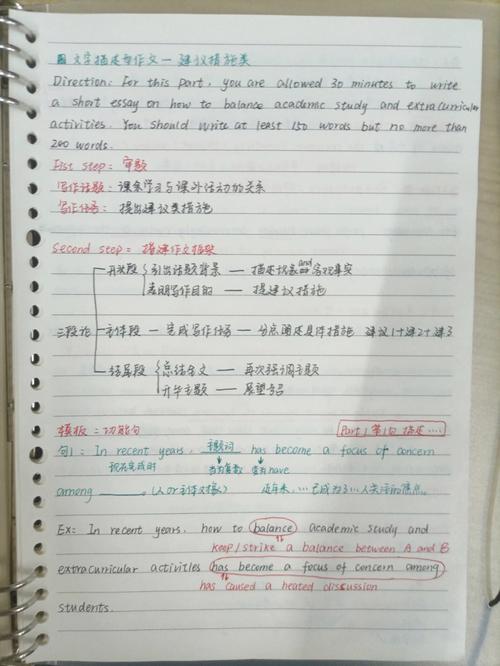 文字描述型作文—建议措施类
Direction: For this part, you are allowed 30 minutes to write
a short essay on how to balance academic study and extracurricular
activities. You should write at least 150 words but no more than
200 words.
Fist step: 审题
写作话题: 课余学习与课外活动的关系
写作任务: 提出建议类措施
Second step: 搭建作文框架
开头段 引出话题背景 — 描述现象and客观事实
表明写作目的 — 提建议措施
三段论 主体段 — 完成写作任务 — 分点阐述具体措施 建议1+建2+建3
结尾段 总结全文 — 再次强调主题
升华主题 — 展望号召
模板: 功能句 Part 1 第1句 描述....
句1: In recent years, 主题词 has become a focus of concern
现在完成时 变为have
among ______. (人or主体对象) 近年来, ...已成为了...人关注的焦点。
Ex: In recent years, how to balance academic study and
keep/strike a balance between A and B
extracurricular activities has become a focus of concern among
has caused a heated discussion
students.